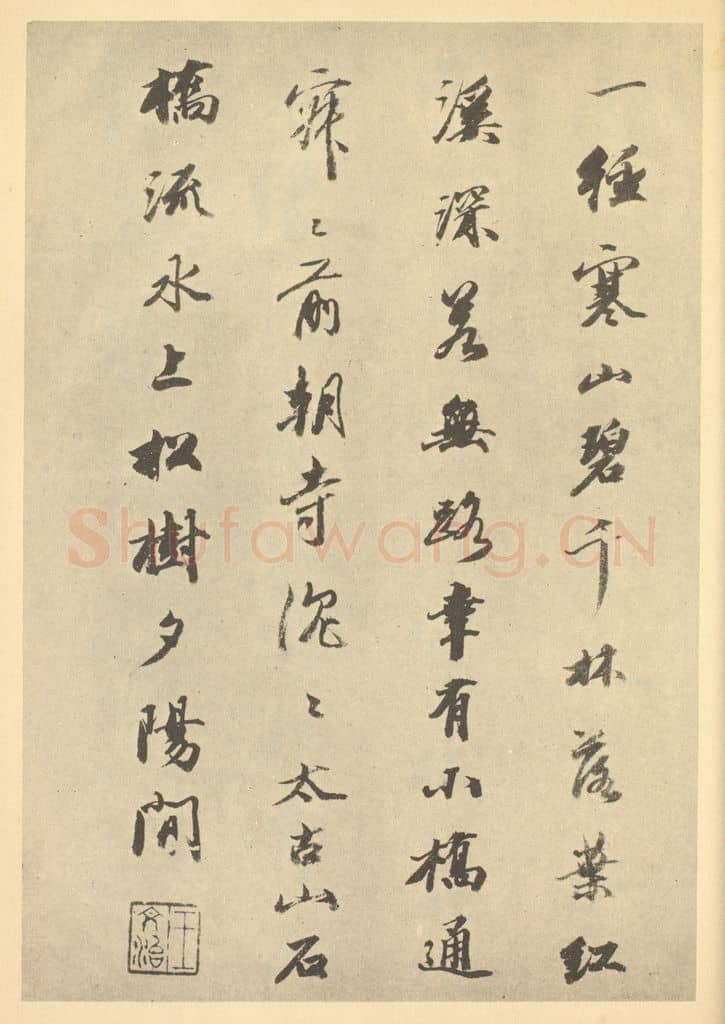 一徑寒山碧千林落葉紅
溪深若無路幸有小橋通
寂〻前朝寺沉〻太古山石
橋流水上松樹夕陽間
王文治
Shufawang.CN